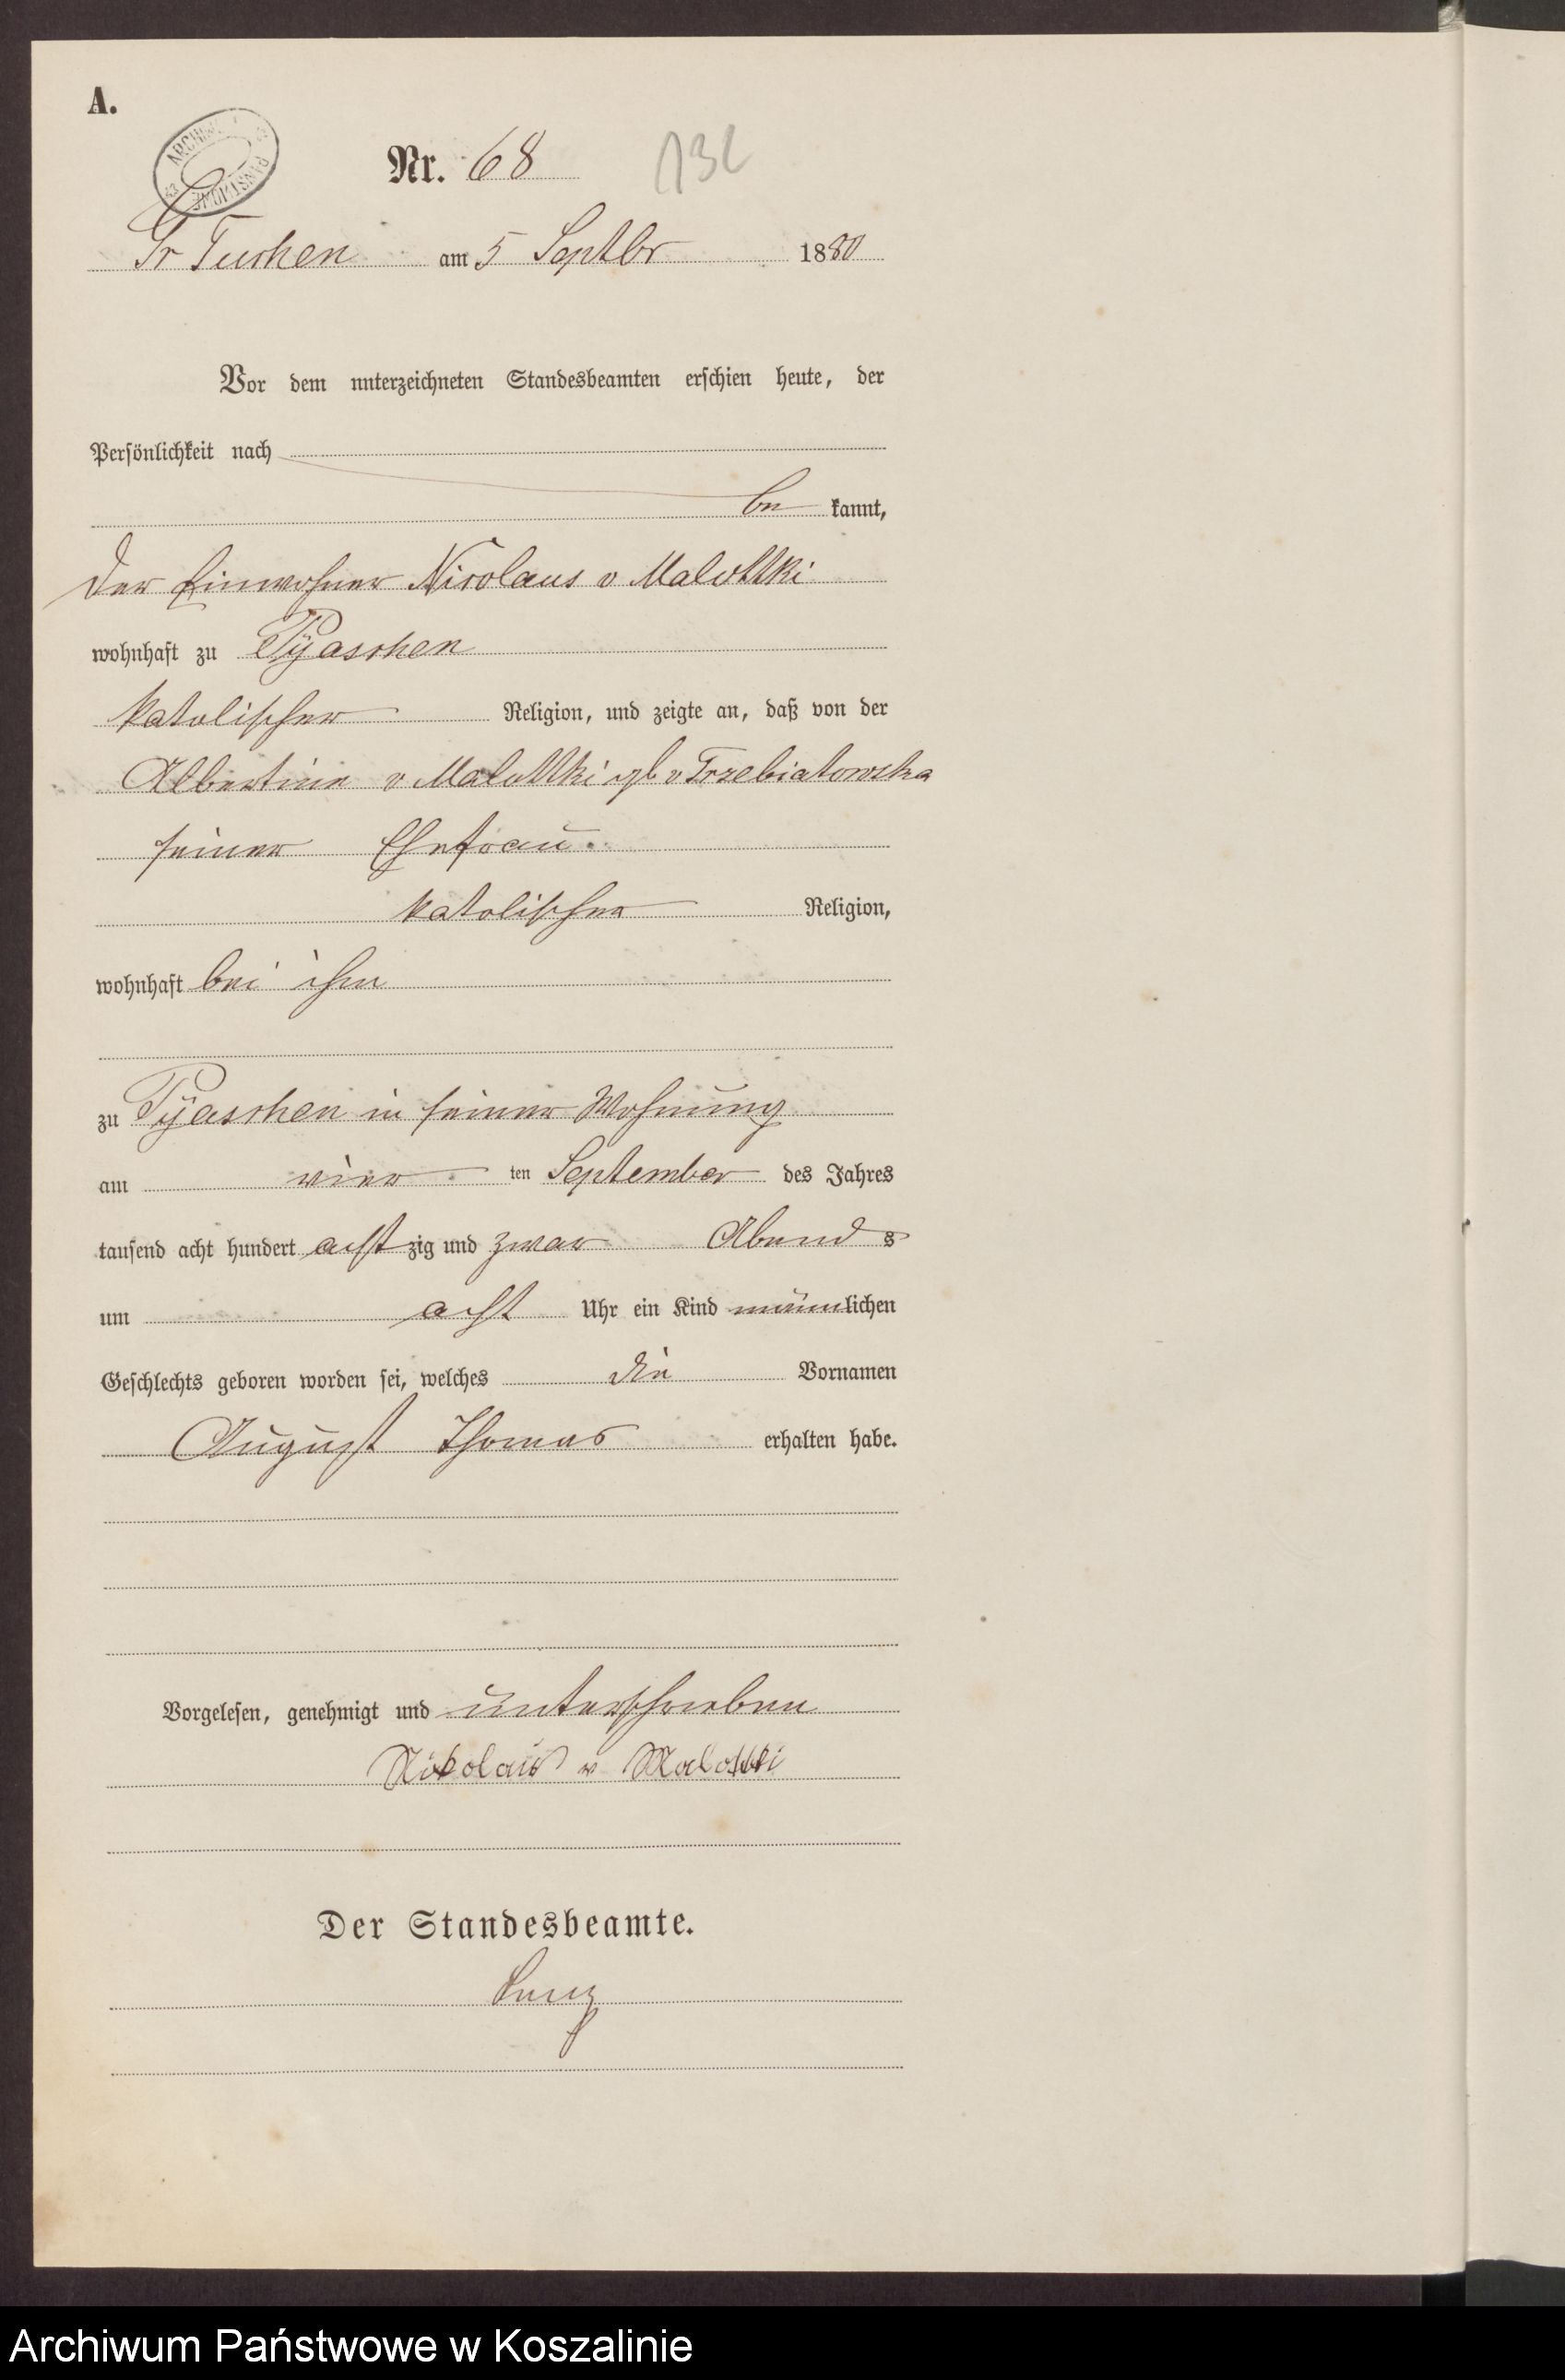 A.
Nr. 68
Gr Tuchen am 5 Septbr 1880
Vor dem unterzeichneten Standesbeamten erschien heute, der
Persönlichkeit nach
be kannt,
der Einwohner Nicolaus v Malottki
wohnhaft zu Pyaschen
katolischer Religion, und zeigte an, daß von der
Albertine v Malottki gb v Trzebiatowska
seiner Ehefrau.
katolischer Religion,
wohnhaft bei ihm
zu Pyaschen in seiner Wohnung
am vier ten September des Jahres
tausend acht hundert acht zig und zwar Abend s
um acht Uhr ein Kind männlichen
Geschlechts geboren worden sei, welches die Vornamen
August Thomas erhalten habe.
Vorgelesen, genehmigt und unterschrieben
Nikolaus v Malottki
Der Standesbeamte.
Archiwum Państwowe w Koszalinie